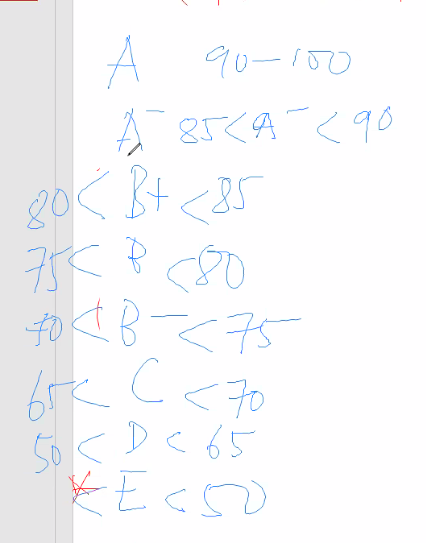 A 90-100
A- 85<A-<90
80<B+<85
75<B<80
70<B-<75
65<C<70
50<D<65
<E<50